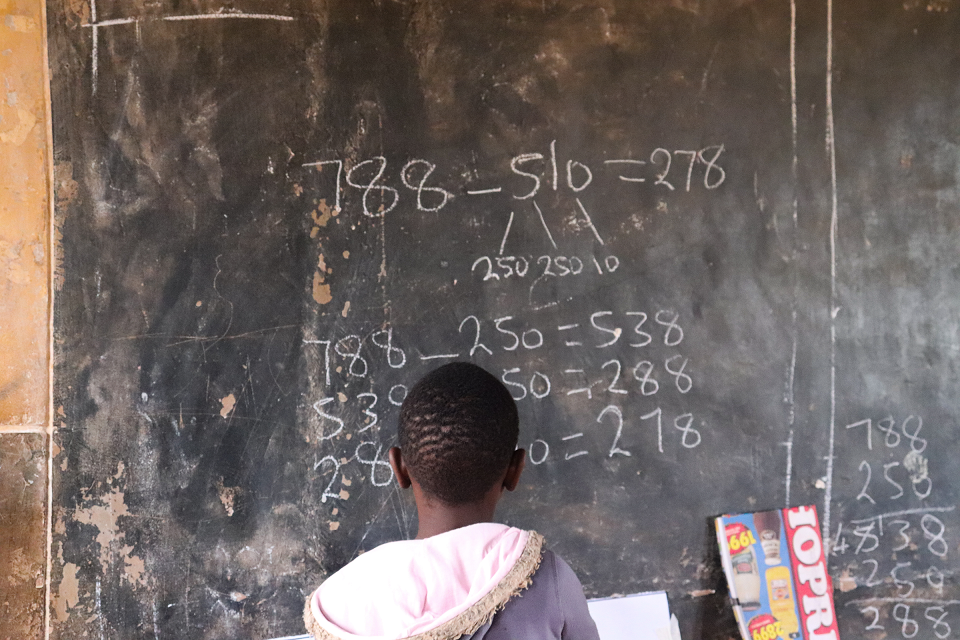 788 - 510 = 278
250 250 10
788 - 250 = 538
53 50 = 288
28 0 = 278
788
250
538
250
288
HOPR
199
6699